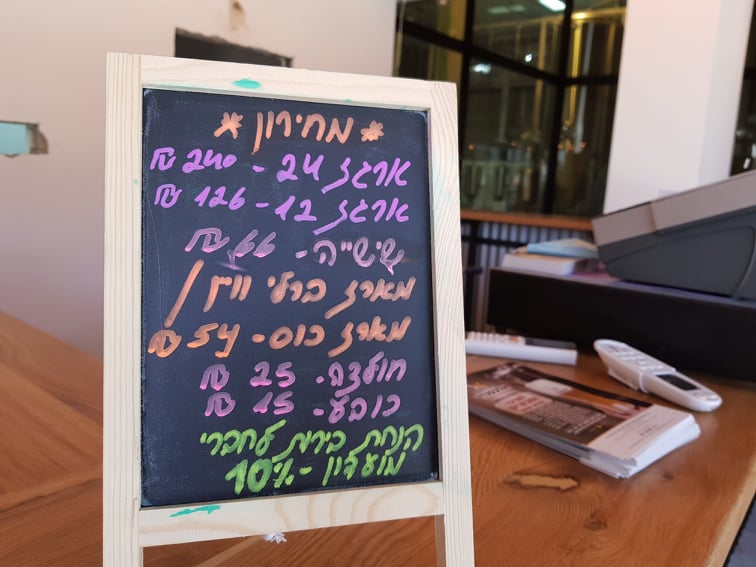 * מחירון *
ארגז 24 - 240 ₪
ארגז 12 - 126 ₪
שישייה - 66 ₪
מארז ברלי וויין /
מארז כוס - 54 ₪
חולצה - 25 ₪
כובע - 15 ₪
הנחת בירות לחברי
מועדון - 10%